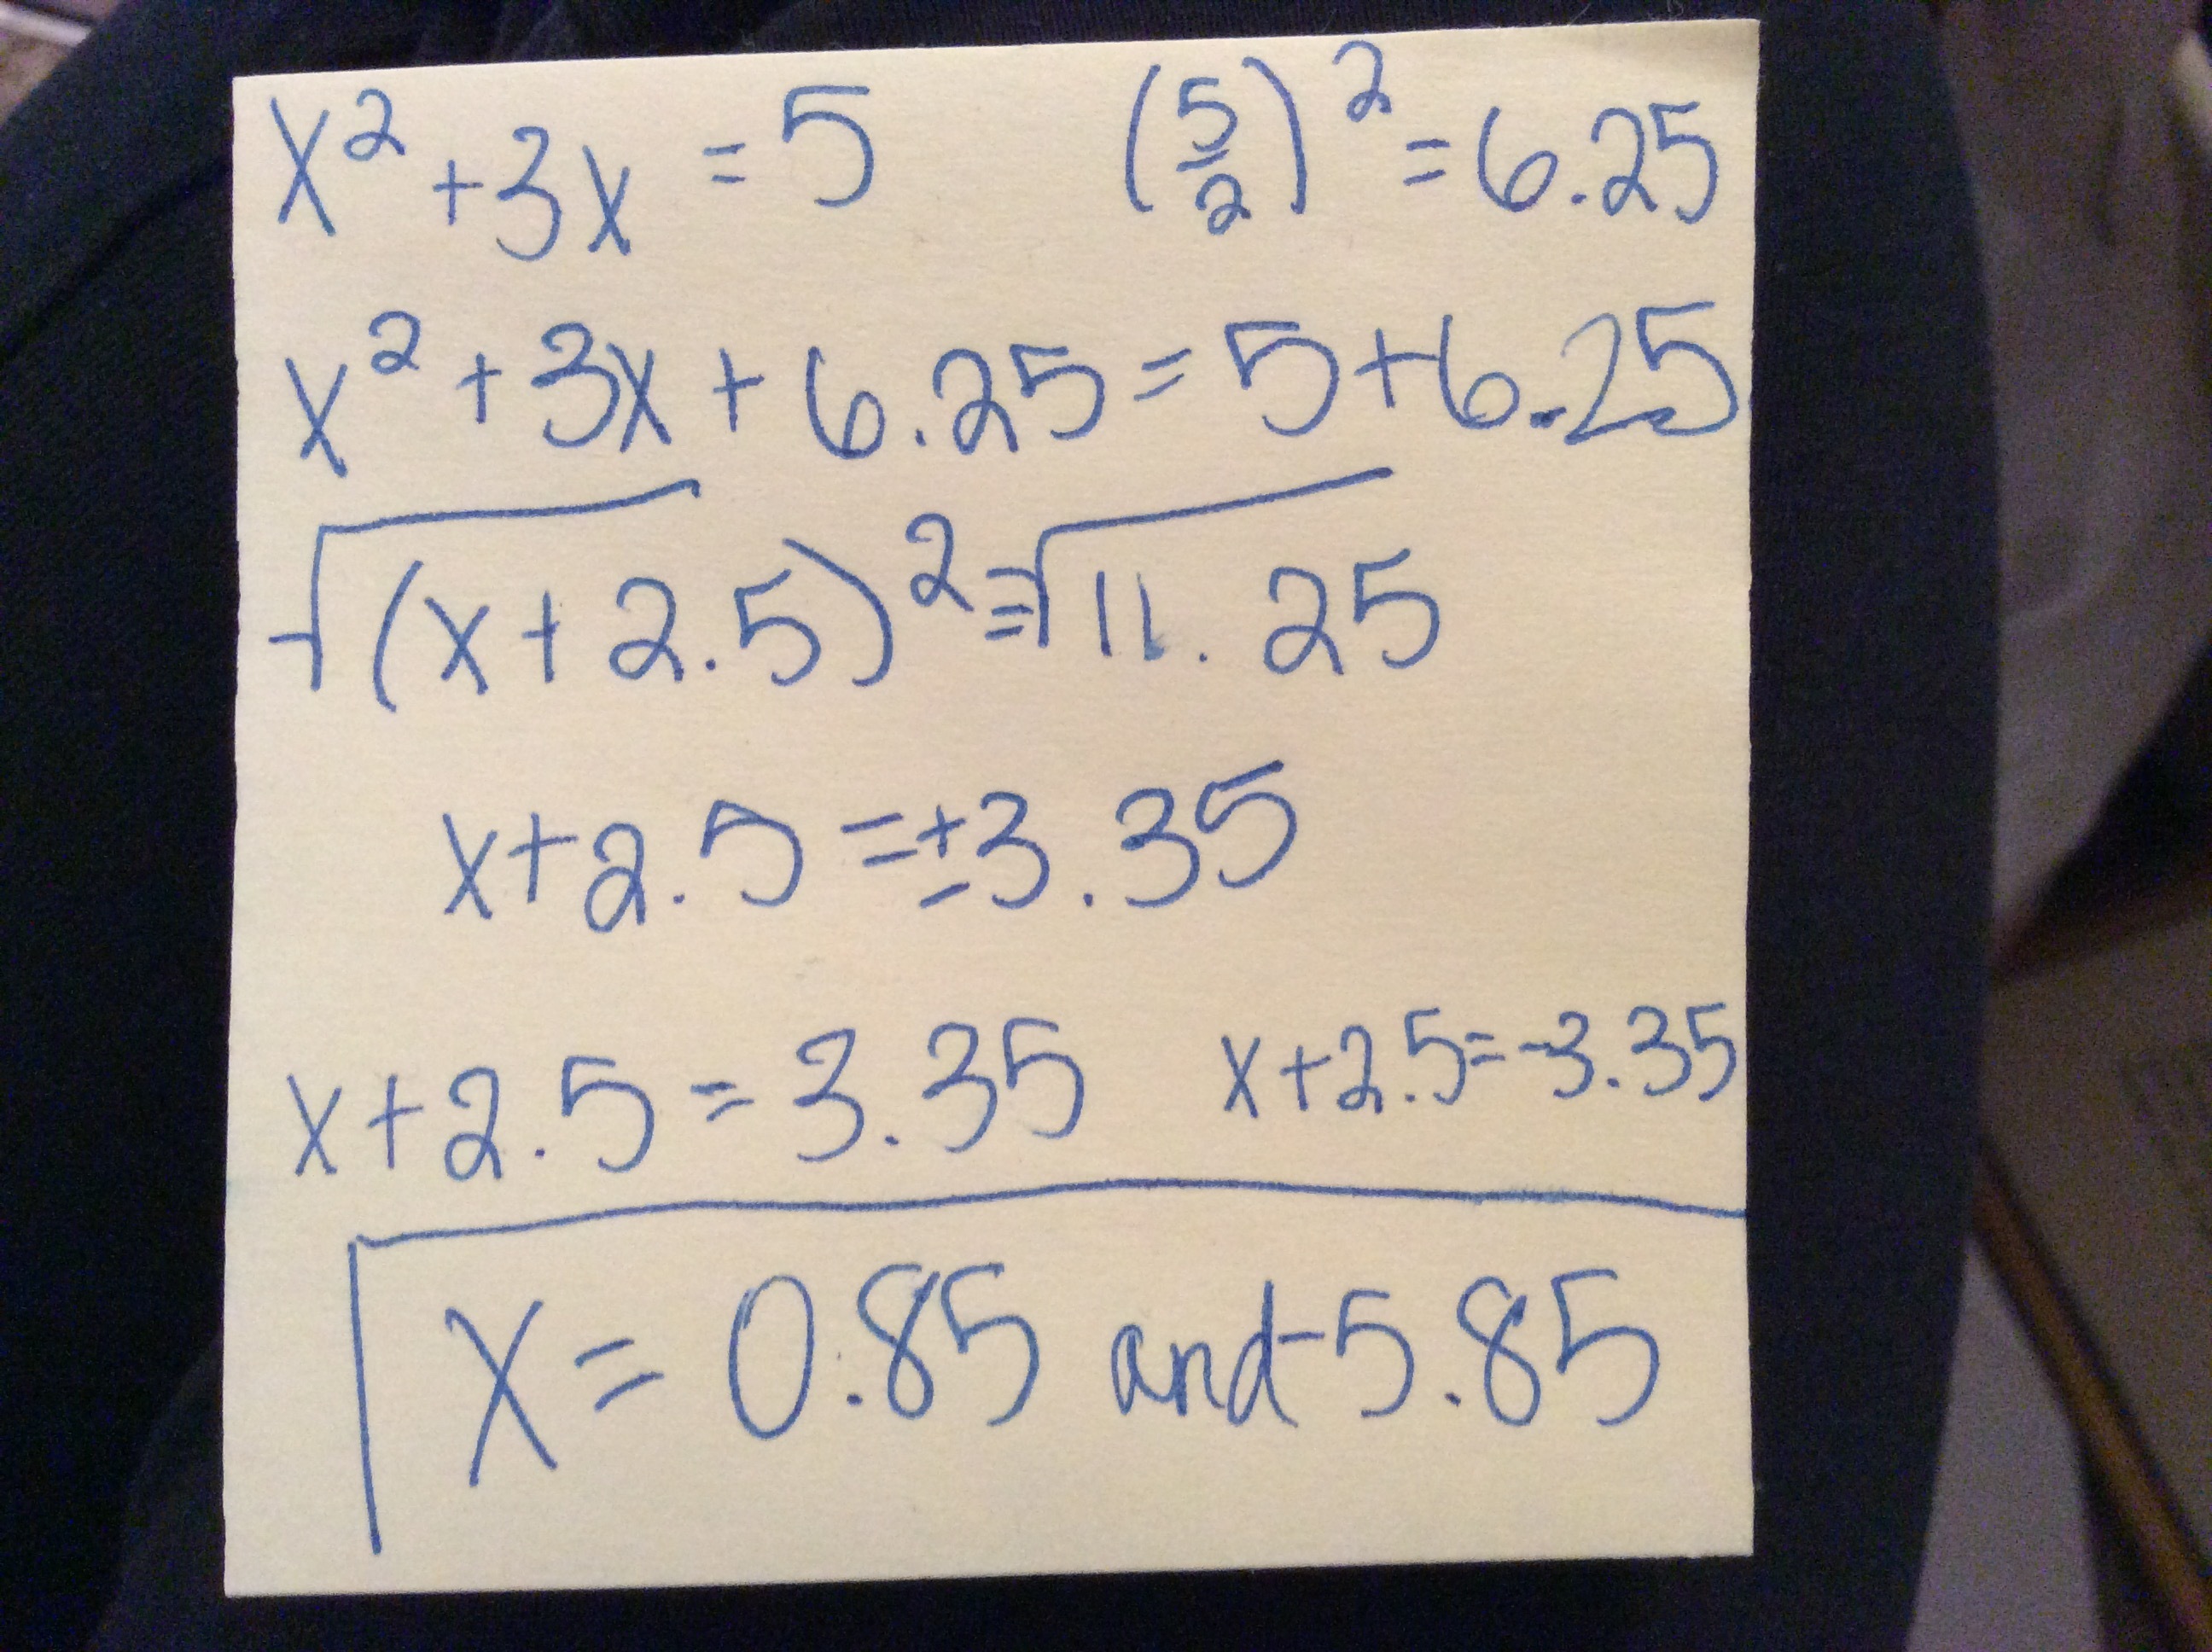 x² + 3x = 5 (5/2)² = 6.25
x² + 3x + 6.25 = 5 + 6.25
√(x + 2.5)² = √11.25
x + 2.5 = ± 3.35
x + 2.5 = 3.35 x + 2.5 = -3.35
x = 0.85 and -5.85